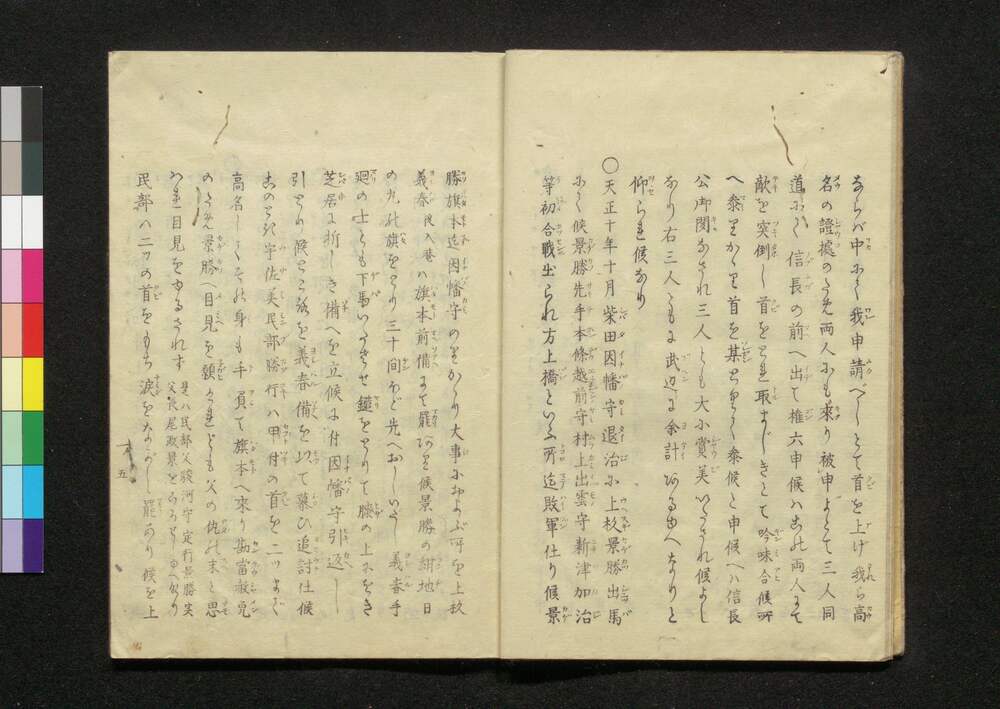 ならバ中にて我申請べしとて首を上げ我ら高
名の證據のため両人にも來り被申よとて三人同
道にて信長の前へ出て権六申候ハこれ両人にて
敵を突倒し首をとれ取まじきとて吟味合候所
へ參りかゝり首を某とりて參候と申候へハ信長
公御聞なされ三人とも大小賞美いたされ候よし
なり右三人ともに武辺に余計ある由へなりと
仰られ候なり
〇天正十年十月柴田因幡守退治に上杦景勝出馬
にて候景勝先手本條越前守村上出雲守新津加治
等初合戰出られ方上橋といふ所迄敗軍仕り候景
勝旗本迄因幡守のりかゝり大事におよぶ所を上杦
義春後入菴ハ旗本前備にて罷あり候景勝の紺地日
の丸の旗をとり三十間ほど先へおしいだし義春手
廻の士ども下馬いたさせ鑓をとりて膝の上におき
芝居に折しき備へを立候に付因幡守引返し
引とり候ところを義春備を以て慕ひ追討仕候
このとき宇佐美民部勝行ハ甲付の首を二ツまで
高名してその身も手負て旗本へ來り勘當赦免
のため景勝へ目見を願けれども父の仇の末と思
ハれ目見をゆるされず
是ハ民部父駿河守定行景勝実
父長尾政景をころせしゆへなり
民部ハ二ツの首をもち涙をながし罷あり候を上
五